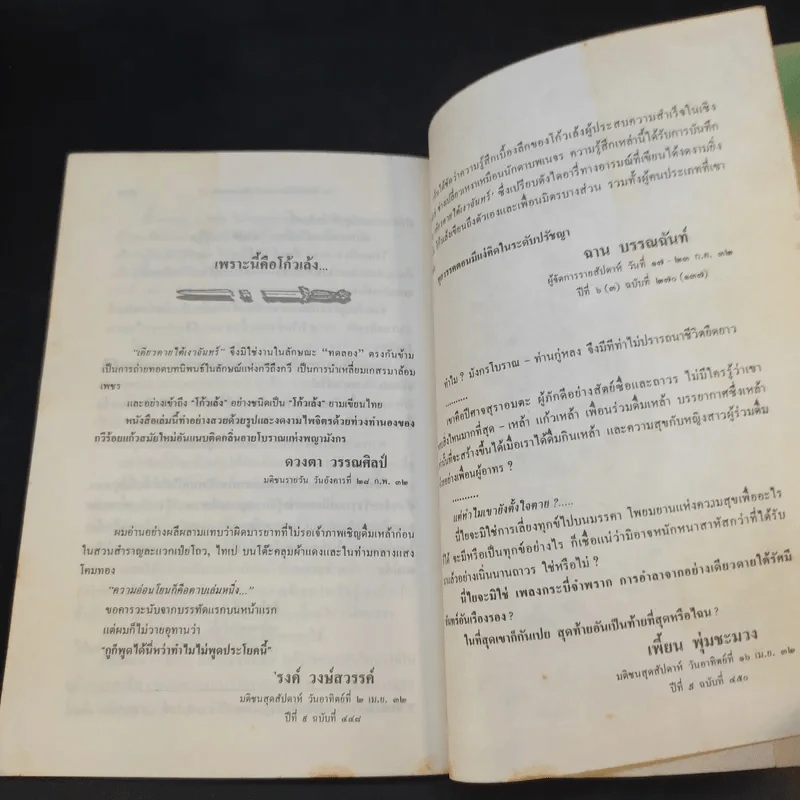 เพราะนี้คือโก้วเล้ง...
"เดียวดายใต้เงาจันทร์" จึงมิใช่งานในลักษณะ "ทดลอง" ตรงกันข้าม
เป็นการถ่ายทอดบทนิพนธ์ในลักษณ์แห่งกวีถึงกวี เป็นการนำเหลี่ยมเกสรมาล้อม
เพชร
และอย่างเข้าถึง "โก้วเล้ง" อย่างชนิดเป็น "โก้วเล้ง" ยามเขียนไทย
หนังสือเล่มนี้ทำอย่างสวยด้วยรูปและงดงามไพจิตรด้วยท่วงทำนองของ
กวีร้อยแก้วสมัยใหม่อันแนบติดกลิ่นอายโบราณแห่งพญามังกร
ดวงตา วรรณศิลป์
มติชนรายวัน วันอังคารที่ ๒๘ ก.พ. ๓๒
ผมอ่านอย่างผลีผลามแทบว่าผิดมารยาทที่ไม่รอเจ้าภาพเชิญดื่มเหล้าก่อน
ในสวนสำราญละแวกเป่ยโถว, ไทเป บนโต๊ะคลุมผ้าแดงและในท่ามกลางแสง
โคมทอง
"ความอ่อนโยนก็คือดาบเล่มหนึ่ง..."
ขอคารวะนับจากบรรทัดแรกบนหน้าแรก
แต่ผมก็ไม่วายอุทานว่า
"กูก็พูดได้นี่หว่าทำไมไม่พูดประโยคนี้"
'รงค์ วงษ์สวรรค์
มติชนสุดสัปดาห์ วันอาทิตย์ที่ ๒ เม.ย. ๓๒
ปีที่ ๙ ฉบับที่ ๔๔๘
ได้ชัดว่าความรู้สึกเบื้องลึกของโก้วเล้งผู้ประสบความสำเร็จในเชิง
เปลี่ยวเหงาเหมือนนักดาบพเนจร ความรู้สึกเหล่านี้ได้รับการบันทึก
ดายใต้เงาจันทร์' ซึ่งเปรียบดังไดอารี่ทางอารมณ์ที่เขียนได้งดงามยิ่ง
โก้วเล้งเขียนถึงตัวเองและเพื่อนมิตรบางส่วน รวมทั้งผู้คนประเภทที่เขา
ทุกวรรคตอนมีแง่คิดในระดับปรัชญา
ฉาน บรรณฉันท์
ผู้จัดการรายสัปดาห์ วันที่ ๑๗ - ๒๓ ก.ค. ๓๒
ปีที่ ๖ (๓) ฉบับที่ ๒๗๐ (๑๓๗)
ทำไม ? มังกรโบราณ - ท่านกู่หลง จึงมีทีท่าไม่ปรารถนาชีวิตยืดยาว
..........
เขาคือปีศาจสุราอมตะ ผู้ภักดีอย่างสัตย์ซื่อและถาวร ไม่มีใครรู้ว่าเขา
สิ่งไหนมากที่สุด - เหล้า แก้วเหล้า เพื่อนร่วมดื่มเหล้า บรรยากาศซึ่งเหล้า
นั้นที่จะสร้างขึ้นได้เมื่อเราได้ดื่มกินเหล้า และความสุขกับหญิงสาวผู้ร่วมดื่ม
อย่างเพื่อนผู้อาทร ?
..........
แต่ทำไมเขายังตั้งใจตาย ?.....
นี่ไยจะมิใช่การเลี่ยงทุกข์ไปบนมรรคา โพยมยานแห่งความสุขเพื่ออะไร
ก็ได้ จะมีหรือเป็นทุกข์อย่างไร ก็เชื่อแน่ว่ามิอาจหนักหนาสาหัสกว่าที่ได้รับ
มาแล้วอย่างเนิ่นนานถาวร ใช่หรือไม่ ?
นี่ไยจะมิใช่ เพลงกระบี่จำพราก การอำลาจากอย่างเดียวดายใต้รัศมี
จันทร์อันเรืองรอง ?
ในที่สุดเขาก็กันเปย สุดท้ายอันเป็นท้ายที่สุดหรือไฉน ?
เพี้ยน พุ่มชะมวง
มติชนสุดสัปดาห์ วันอาทิตย์ที่ ๑๖ เม.ย. ๓๒
ปีที่ ๙ ฉบับที่ ๔๕๐